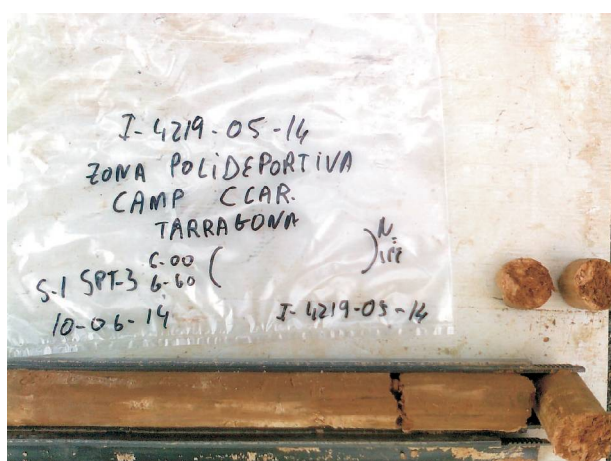 I-4219-05-14
ZONA POLIDEPORTIVA
CAMP CLAR.
TARRAGONA
S-1 SPT-3 6.00 ( ) N:
6.60
10-06-14 I-4219-05-14